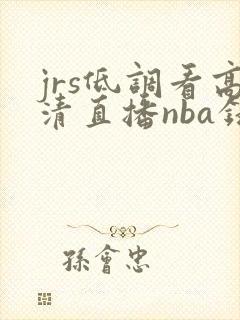 jrs低調看高
清直播nba
孫會忠